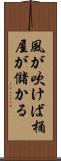 風が吹けば桶
屋が儲かる